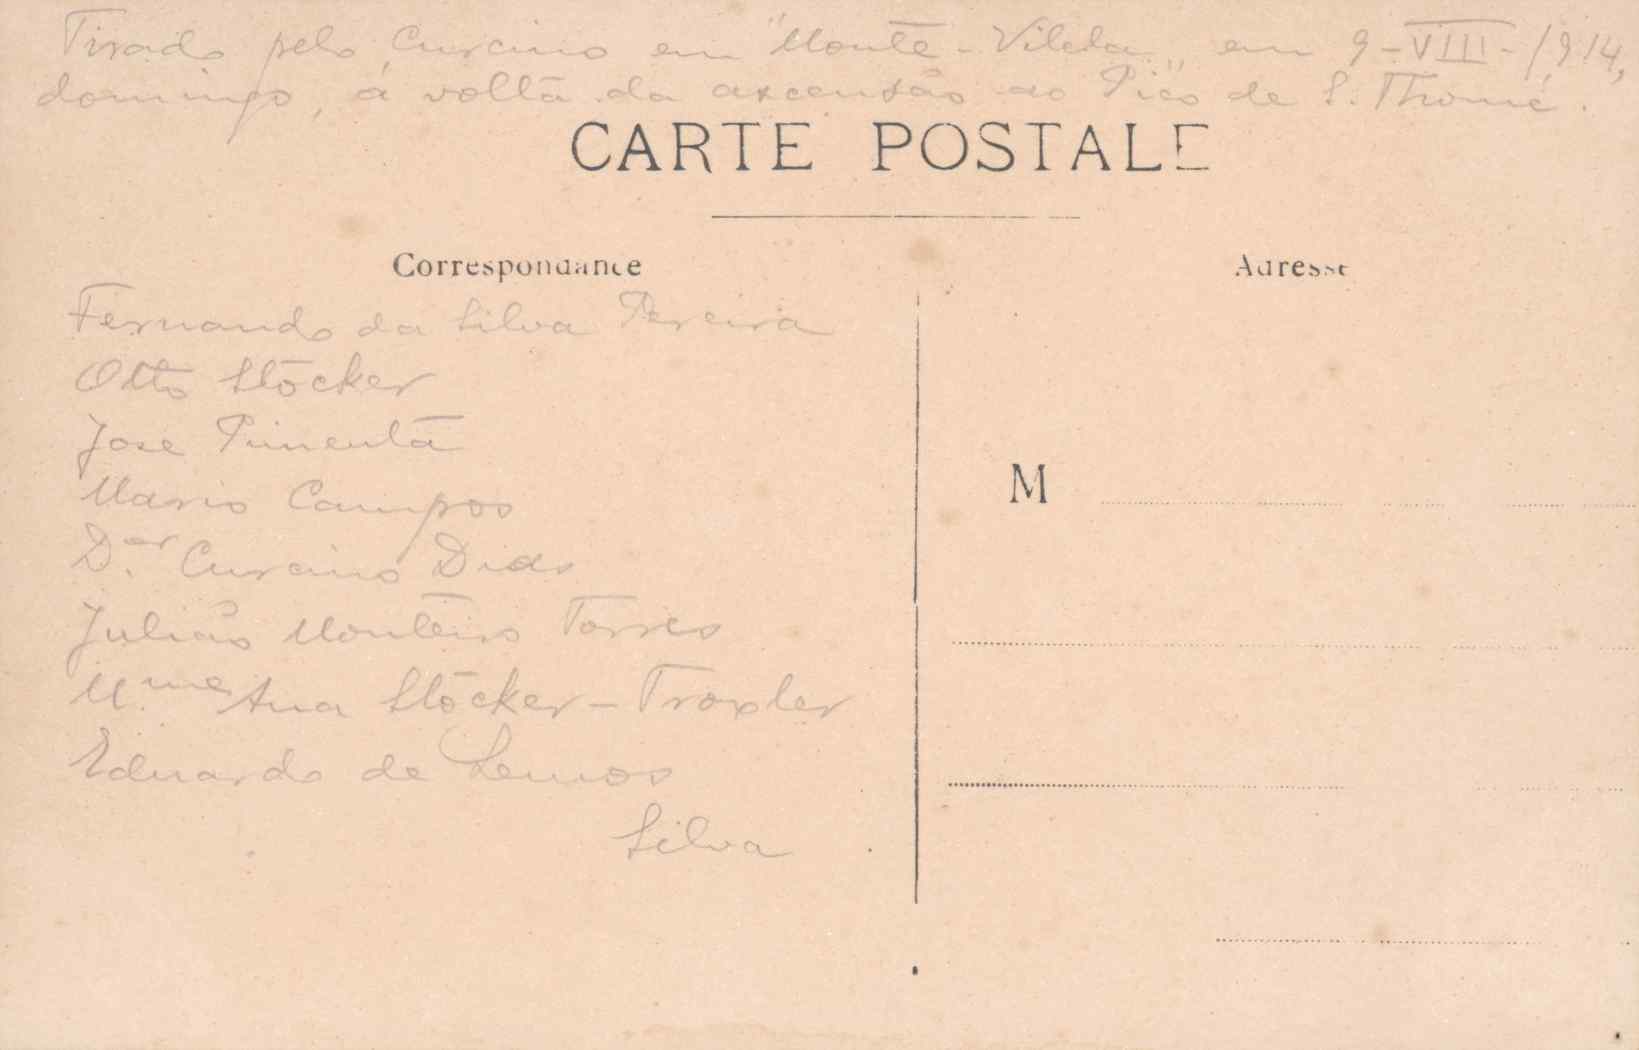 Tirado pelo Curcino em "Monte-Vilela" em 9-VIII-1914,
domingo, á volta da ascensão ao Pico de S. Thomé.
CARTE POSTALE
Correspondance
Adresse
Fernando da Silva Pereira
Otto Stöcker
José Pimenta
Mario Campos
D.or Curcino Dias
Julião Monteiro Torres
M.me Ana Stöcker-Troxler
Eduardo de Lemos
Silva
M